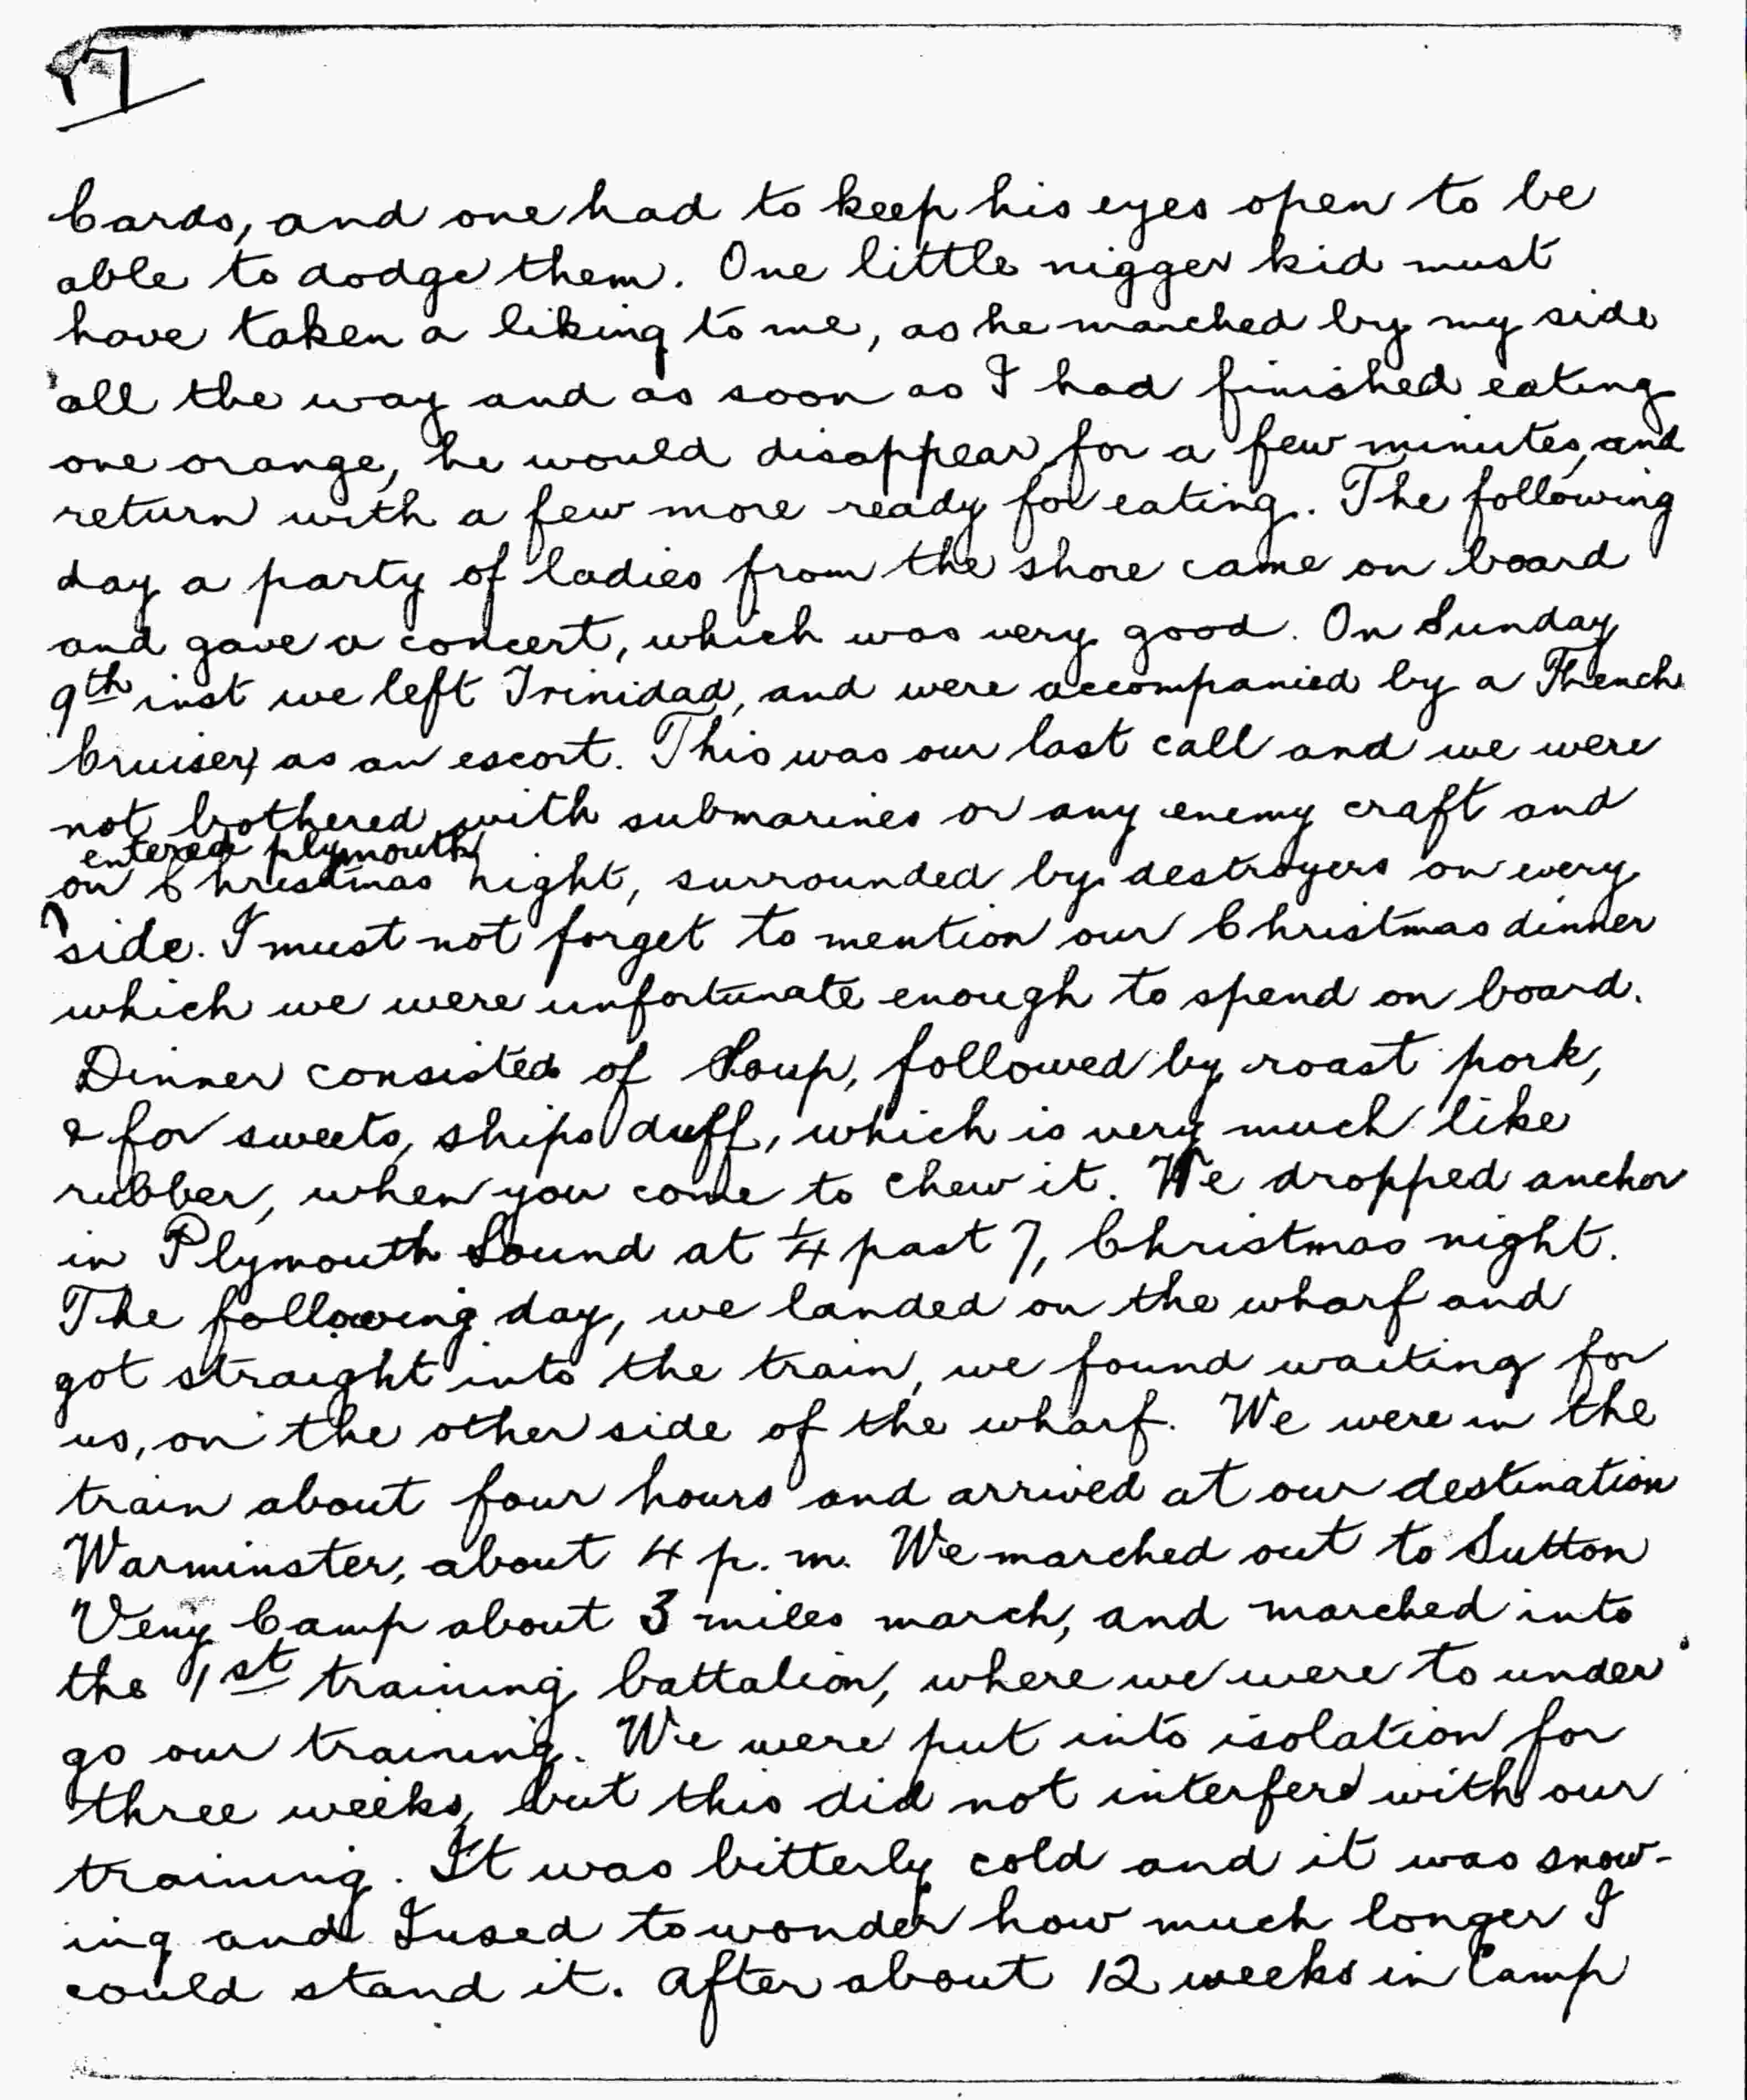 7
Cards, and one had to keep his eyes open to be
able to dodge them. One little nigger kid must
have taken a liking to me, as he marched by my side
all the way and as soon as I had finished eating
one orange, he would disappear for a few minutes, and
return with a few more ready for eating. The following
day a party of ladies from the shore came on board
and gave a concert, which was very good. On Sunday
9th inst we left Trinidad, and were accompanied by a French
Cruiser, as an escort. This was our last call and we were
not bothered with submarines or any enemy craft and
entered plymouth
on Christmas night, surrounded by destroyers on every
side. I must not forget to mention our Christmas dinner
which we were unfortunate enough to spend on board.
Dinner consisted of Soup, followed by roast pork,
& for sweets, ships duff, which is very much like
rubber, when you come to chew it. We dropped anchor
in Plymouth Sound at 1/4 past 7, Christmas night.
The following day, we landed on the wharf and
got straight into the train, we found waiting for
us, on the other side of the wharf. We were in the
train about four hours and arrived at our destination
Warminster, about 4 p.m. We marched out to Sutton
Veny Camp about 3 miles march, and marched into
the 1st training battalion, where we were to under
go our training. We were put into isolation for
three weeks, but this did not interfere with our
training. It was bitterly cold and it was snow-
ing and I used to wonder how much longer I
could stand it. After about 12 weeks in Camp